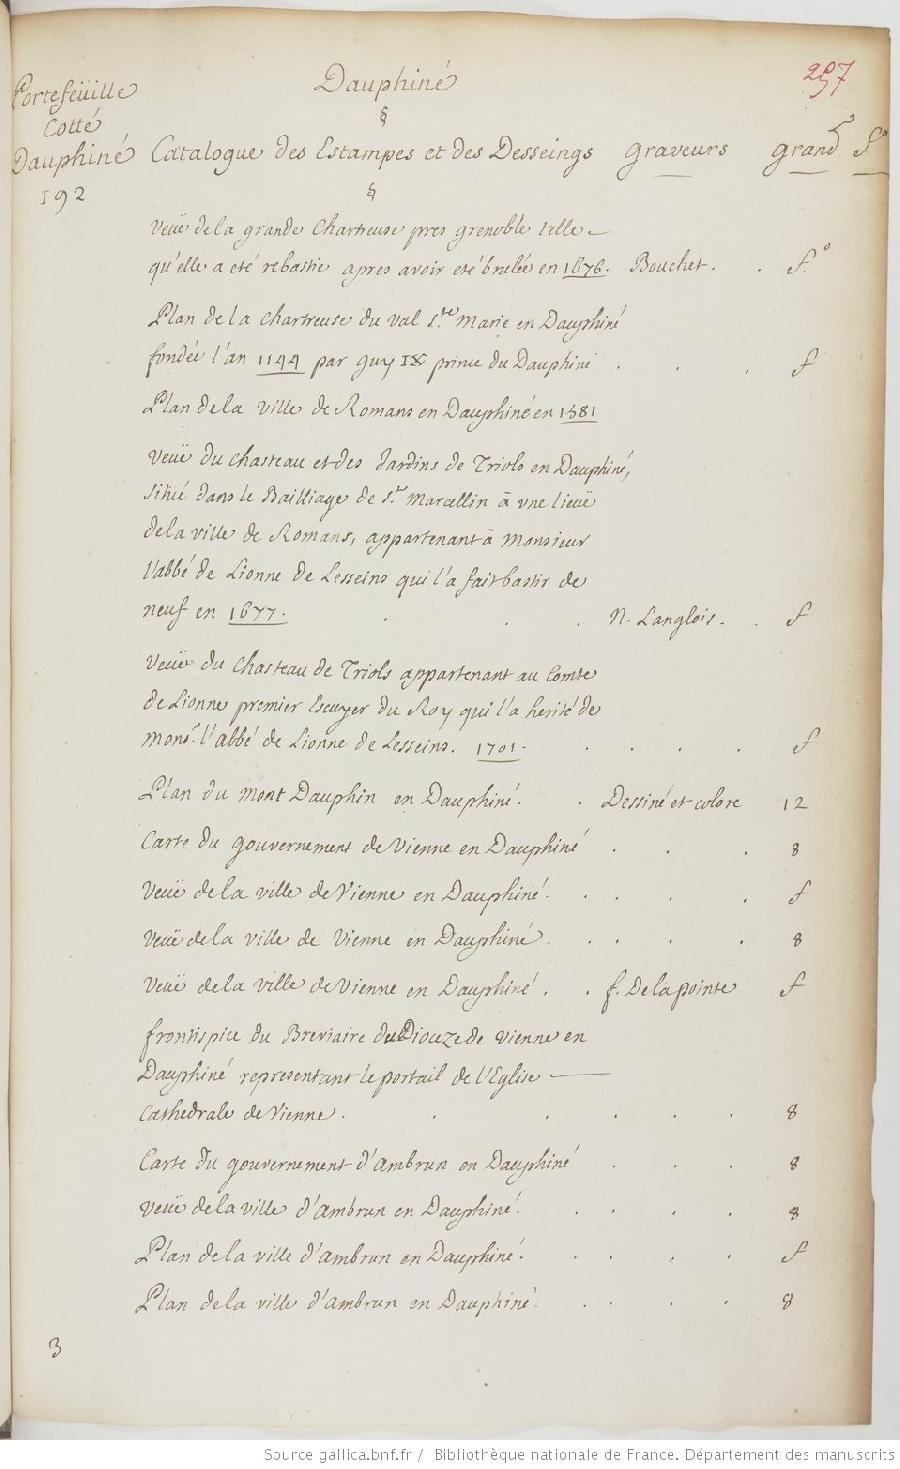 297
Portefeüille
Cotté
Dauphiné
192
Dauphiné
§
Catalogue des Estampes et des Desseings graveurs grand.r f.o
§
Veüe de la grande Chartreuse pres grenoble telle
qu'elle a eté rebastie apres avoir eté brulée en 1676. Bouchet. . f.o
Plan de la Chartreuse du val S.te Marie en Dauphiné
fondée l'an 1144 par guy IX prince du Dauphiné . . . f
Plan de la ville de Romans en Dauphiné en 1581
Veüe du Chasteau et des Jardins de Triols en Dauphiné,
situé dans le Bailliage de S.t Marcellin à vne lieuë
de la ville de Romans, appartenant à Monsieur
l'abbé de Lionne de Lesseins qui l'a fait bastir de
neuf en 1677. . . . N. Langlois. . f
Veüe du Chasteau de Triols appartenant au Comte
de Lionne premier Escuyer du Roy qui l'a herité de
Mons.r l'abbé de Lionne de Lesseins. 1701. . . . . f
Plan du Mont Dauphin en Dauphiné. . Dessiné et coloré 12
Carte du gouvernement de Vienne en Dauphiné . . . 8
Veüe de la ville de Vienne en Dauphiné. . . . . f
Veüe de la ville de Vienne en Dauphiné . . . . 8
Veüe de la ville de Vienne en Dauphiné . . f. Delapointe f
frontispice du Breviaire du Diouze de Vienne en
Dauphiné representant le portail de l'Eglise —
Cathedrale de Vienne. . . . . . 8
Carte du gouvernement d'Ambrun en Dauphiné . . . 8
Veüe de la ville d'Ambrun en Dauphiné. . . . . 8
Plan de la ville d'Ambrun en Dauphiné. . . . . f
Plan de la ville d'Ambrun en Dauphiné. . . . . 8
3
Source gallica.bnf.fr / Bibliothèque nationale de France. Département des manuscrits